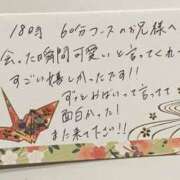 18時 60分コースのお兄様へ
会った瞬間可愛いと言ってくれて
すごい嬉しかったです!!
ずっとかわいって言ってて
面白かった!
また来て下さい!!